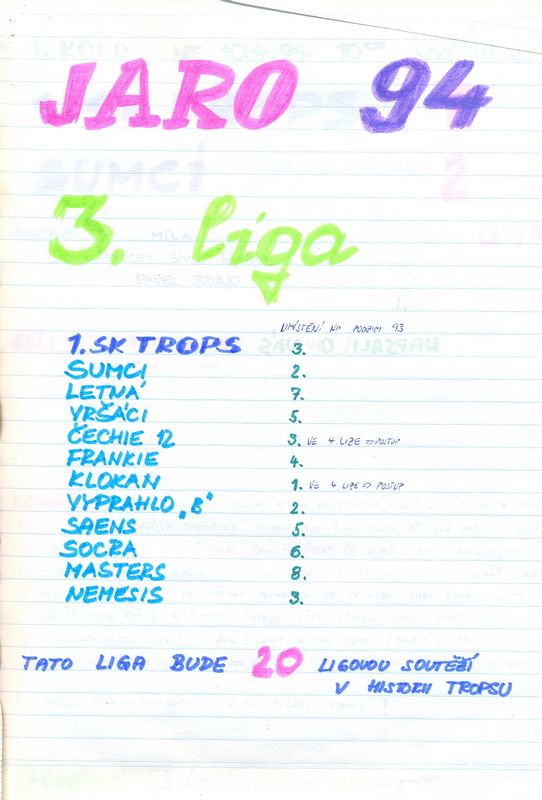 JARO 94
3. liga
UMÍSTĚNÍ NA PODZIM 93
1. SK TROPS 3.
SUMCI 2.
LETNÁ 7.
VRŠÁCI 5.
ČECHIE 12 3. VE 4. LIZE => POSTUP
FRANKIE 4.
KLOKAN 1. VE 4. LIZE => POSTUP
VYPRAHLO „B“ 2.
SAENS 5.
SOCRA 6.
MASTERS 8.
NEMESIS 3.
TATO LIGA BUDE 20 LIGOVOU SOUTĚŽÍ
V HISTORII TROPSU